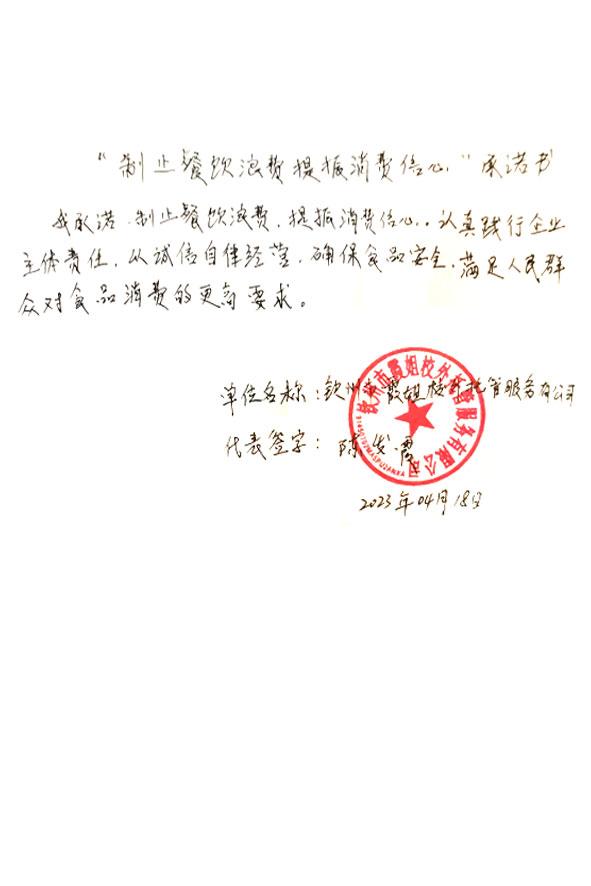 “制止餐饮浪费提振消费信心”承诺书
我承诺：制止餐饮浪费，提振消费信心，认真践行企业
主体责任，从诚信自律经营，确保食品安全，满足人民群
众对食品消费的更高要求。
单位名称：钦州市霞姐校外托管服务有限公司
代表签字：陈发霞
2023年04月18日
钦州市霞姐校外托管服务有限公司